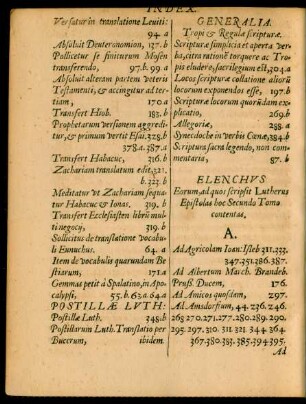 INDEX.
Versatur in translatione Leuiti:
94.a
Absoluit Deuteronomion, 127.b
Pollicetur se finiturum Mosen
transferendo, 97.b.99.a
Absoluit alteram partem veteris
Testamenti, & accingitur ad ter-
tiam, 170.a
Transfert Hiob. 183.b
Prophetarum versionem aggredi-
tur, & primum vertit Esai. 328.b
378.a.387.a
Transfert Habacuc, 216.b
Zachariam translatum edit. 321.
b.322.b
Meditatur vt Zachariam sequa-
tur Habacuc & Ionas. 319.b
Transfert Ecclesiasten librũ mul
ti negocij, 319.b
Sollicitus de translatione vocabu-
li Eunuchus. 64.a
Item de vocabulis quarundam Be
stiarum, 171.a
Gemmas petit à Spalatino, in Apo
calypsi, 55.b.63.a.64.a
POSTILLÆ LVTH:
Postillæ Luth. 348.b
Postillarum Luth. Translatio per
Buccrum, ibidem.
GENERALIA.
Tropi & Regulæ scripturæ.
Scripturæ simplicia et aperta ver-
ba, citra rationẽ torquere ac Tro-
pis eludere, sacrilegium est, 304.a
Locos scripturæ collatione aliorũ
locorum exponendos esse, 197.b
Scripturæ locorum quorũdam ex-
plicatio, 269.b
Allegoriæ, 288.a
Synecdoche in verbis Cœnæ, 384.b
Scriptura sacra legendo, non com
mentaria, 87.b
ELENCHVS
Eorum, ad quos scripsit Lutherus
Epistolas hoc Secundo Tomo
contentas,
A.
Ad Agricolam Ioan: Isleb 211.333.
347.351.286.387.
Ad Albertum March. Brandeb.
Pruß. Ducem, 176.
Ad Amicos quosdam, 297.
Ad Amsdorfium, 44.226.246.
263.270.271.277.280.289.290.
295.297.310.311.321.344.364.
367.380.383.385.394.395.
Ad